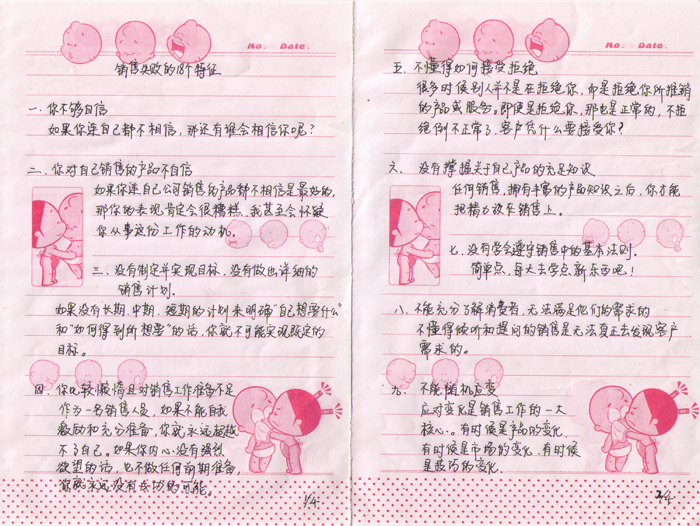 No. Date.
销售失败的18个特征
一. 你不够自信
如果你连自己都不相信，那还有谁会相信你呢？
二. 你对自己销售的产品不自信
如果你连自己公司销售的产品都不相信是最好的，
那你的表现肯定会很糟糕，我甚至会怀疑
你从事这份工作的动机。
三. 没有制定并实现目标，没有做出详细的
销售计划.
如果没有长期.中期.短期的计划来明确"自己想要什么"
和"如何得到所想要"的话，你就不可能实现既定的
目标。
四. 你比较懒惰且对销售工作准备不足
作为一名销售人员，如果不能自我
激励和充分准备，你就永远超越
不了自己。如果你内心没有强烈
欲望的话，也不做任何前期准备，
你就永远没有成功的可能。
1/4
No. Date.
五. 不懂得如何接受拒绝
很多时候别人并不是在拒绝你，而是拒绝你所推销
的产品或服务。即使是拒绝你，那也是正常的，不拒
绝倒不正常了，客户凭什么要接受你？
六. 没有掌握关于自己产品的充足知识
任何销售，拥有丰富的产品知识之后，你才能
把精力放在销售上。
七. 没有学会遵守销售中的基本法则.
简单点，每天去学点新东西吧！
八. 不能充分了解消费者，无法满足他们的需求的
不懂得倾听和提问的销售是无法真正去发现客户
需求的。
九. 不能随机应变
应对变化是销售工作的一大
核心。有时候是产品的变化.
有时候是市场的变化.有时候
是技巧的变化.
2/4